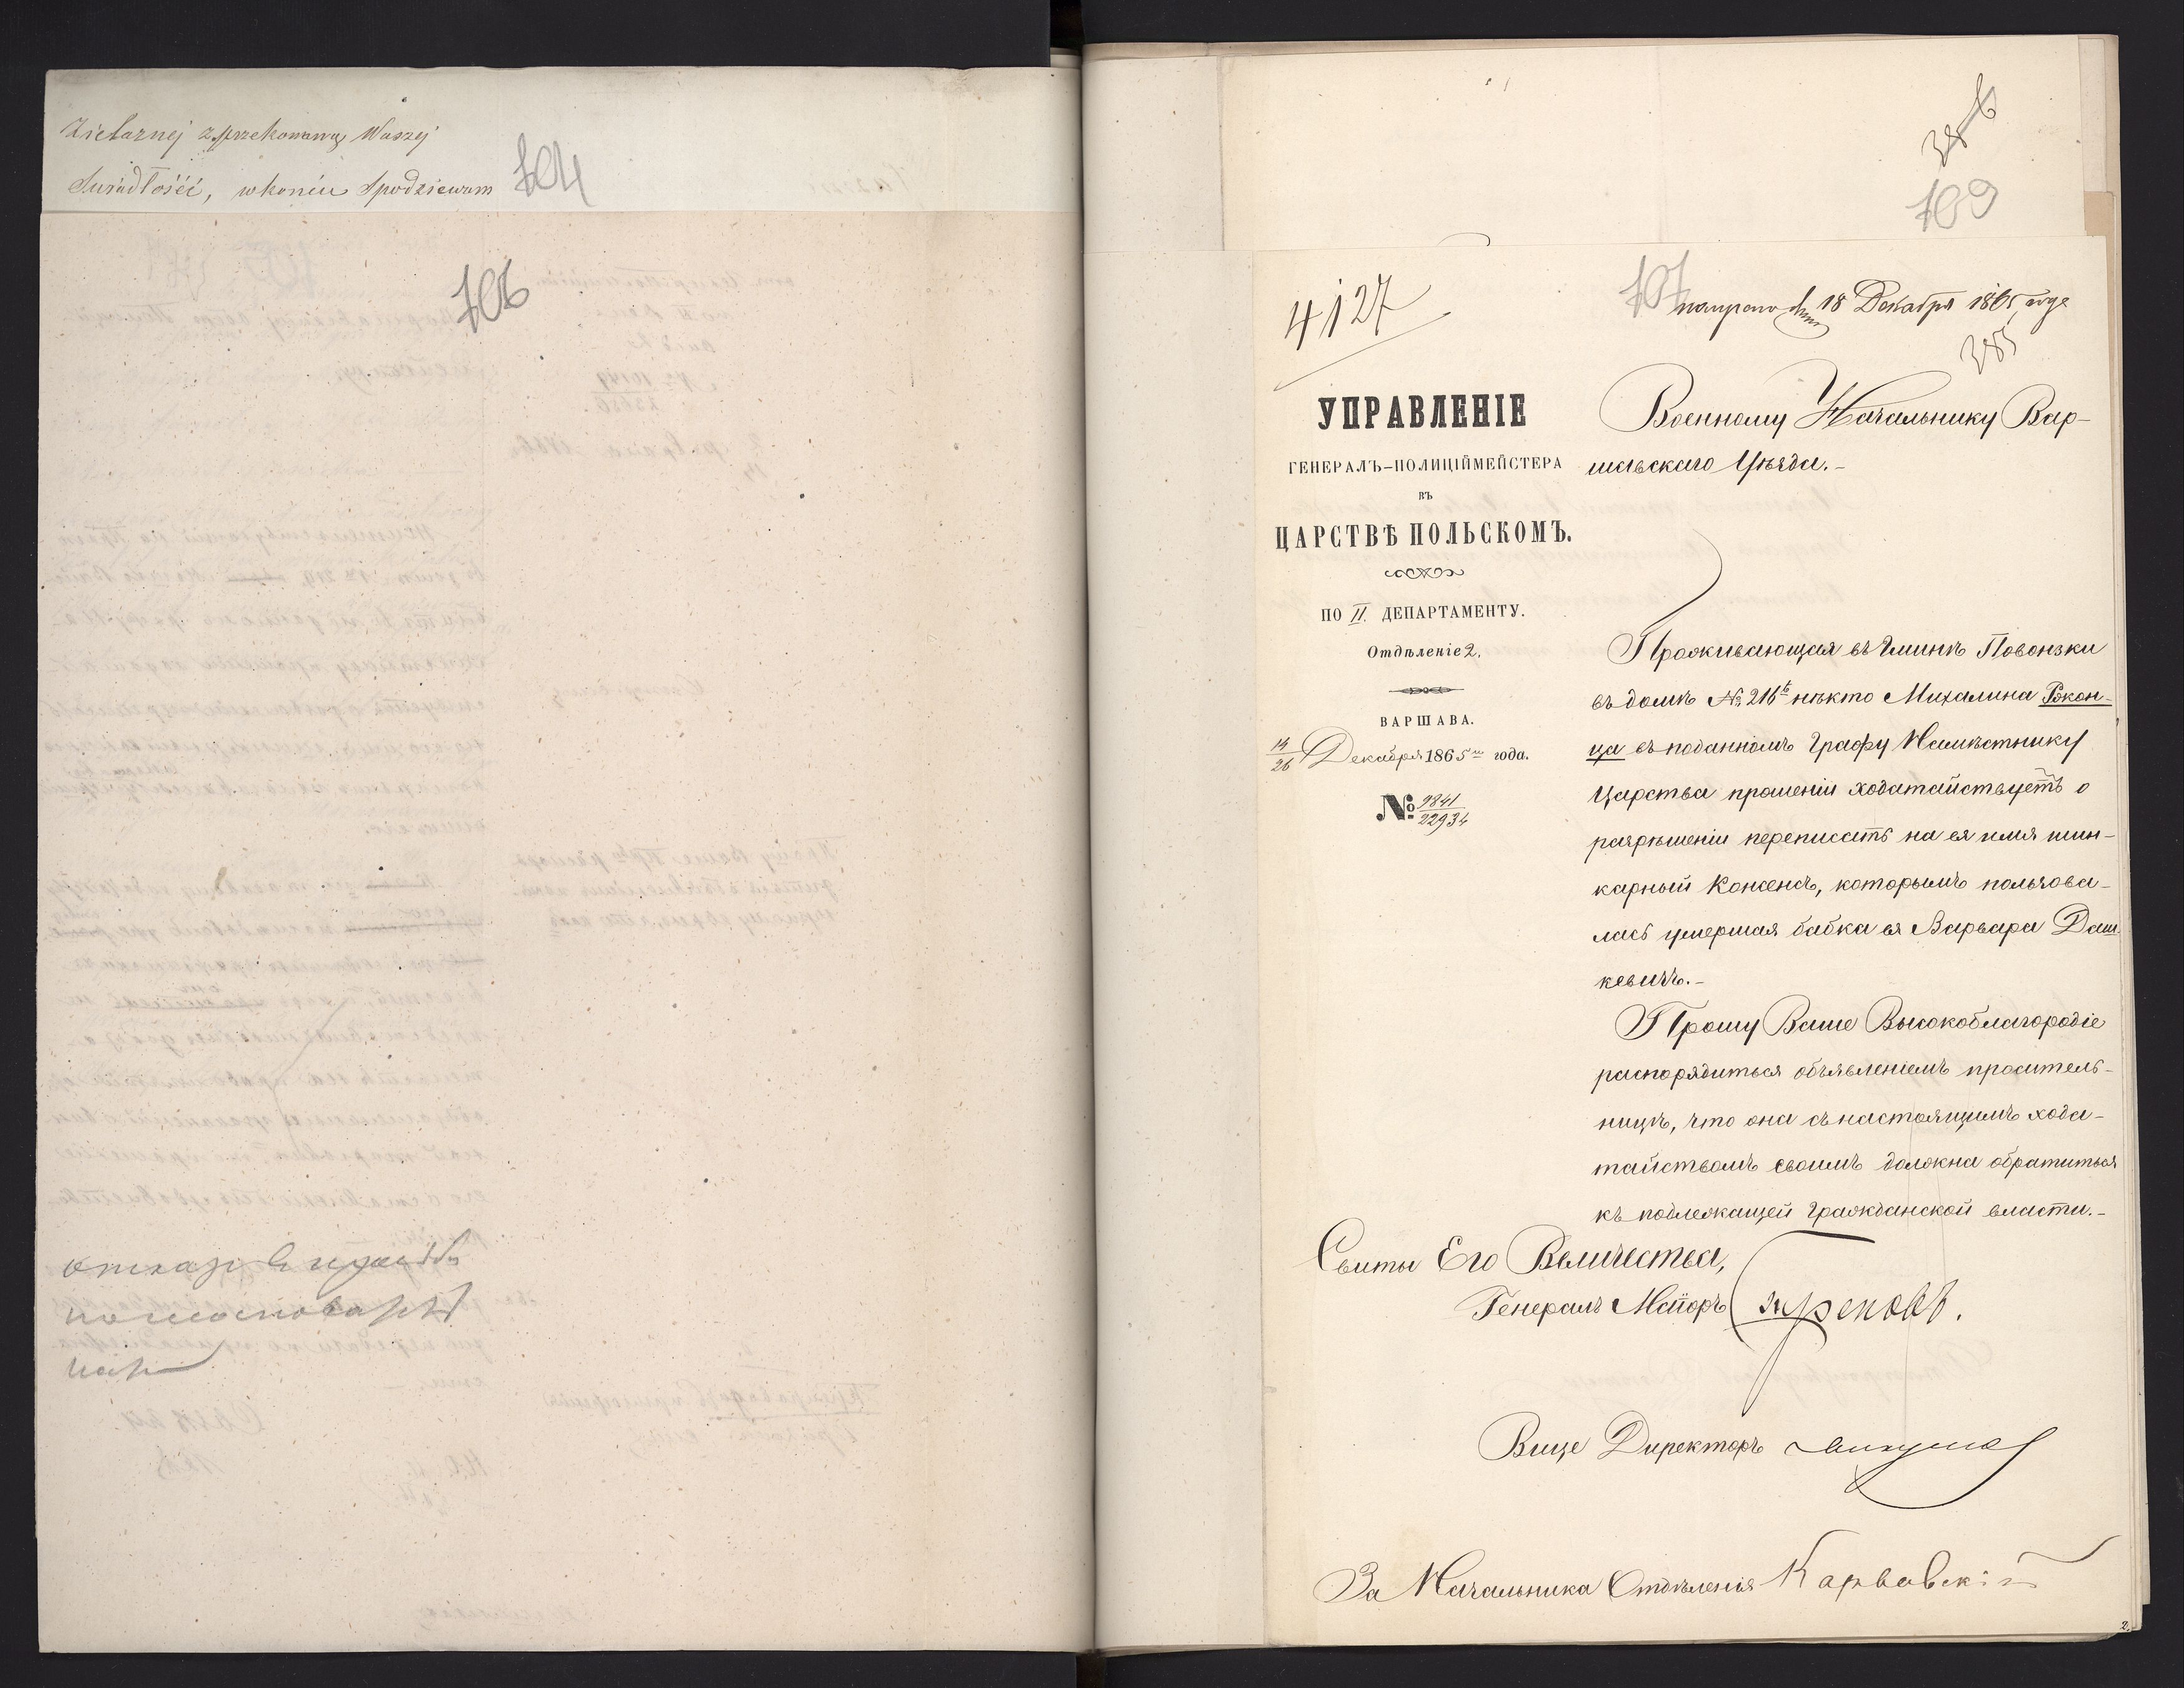 z przekonaną Waszej
wkońcu Spodziewam
104
106
отказъ
109
107
4127
18 Декабря 1865 года
385
УПРАВЛЕНІЕ
ГЕНЕРАЛЪ-ПОЛИЦІЙМЕЙСТЕРА
ВЪ
ЦАРСТВѢ ПОЛЬСКОМЪ.
ПО II. ДЕПАРТАМЕНТУ.
Отдѣленіе 2.
ВАРШАВА.
14/26 Декабря 1865 года.
№ 9841/22934
Военному Начальнику Вар-
шавскаго Уѣзда.-
Проживающая въ Гминѣ Повонзки
въ домѣ № 216 нѣкто Михалина Рѣкон-
ца въ поданномъ Графу Намѣстнику
Царства прошеніи ходатайствуетъ о
разрѣшеніи переписать на ея имя шин-
карный Консенсъ, которымъ пользова-
лась умершая бабка ея Варвара Даш-
кевичъ.-
Прошу Ваше Высокоблагородіе
распорядиться объявленіемъ проситель-
ницѣ, что она съ настоящимъ хода-
тайствомъ своимъ должна обратиться
къ подлежащей Гражданской власти.-
Свиты Его Величества,
Генералъ Маіоръ Треповъ.
Вице Директоръ
За Начальника Отдѣленія Карвовскій
2.